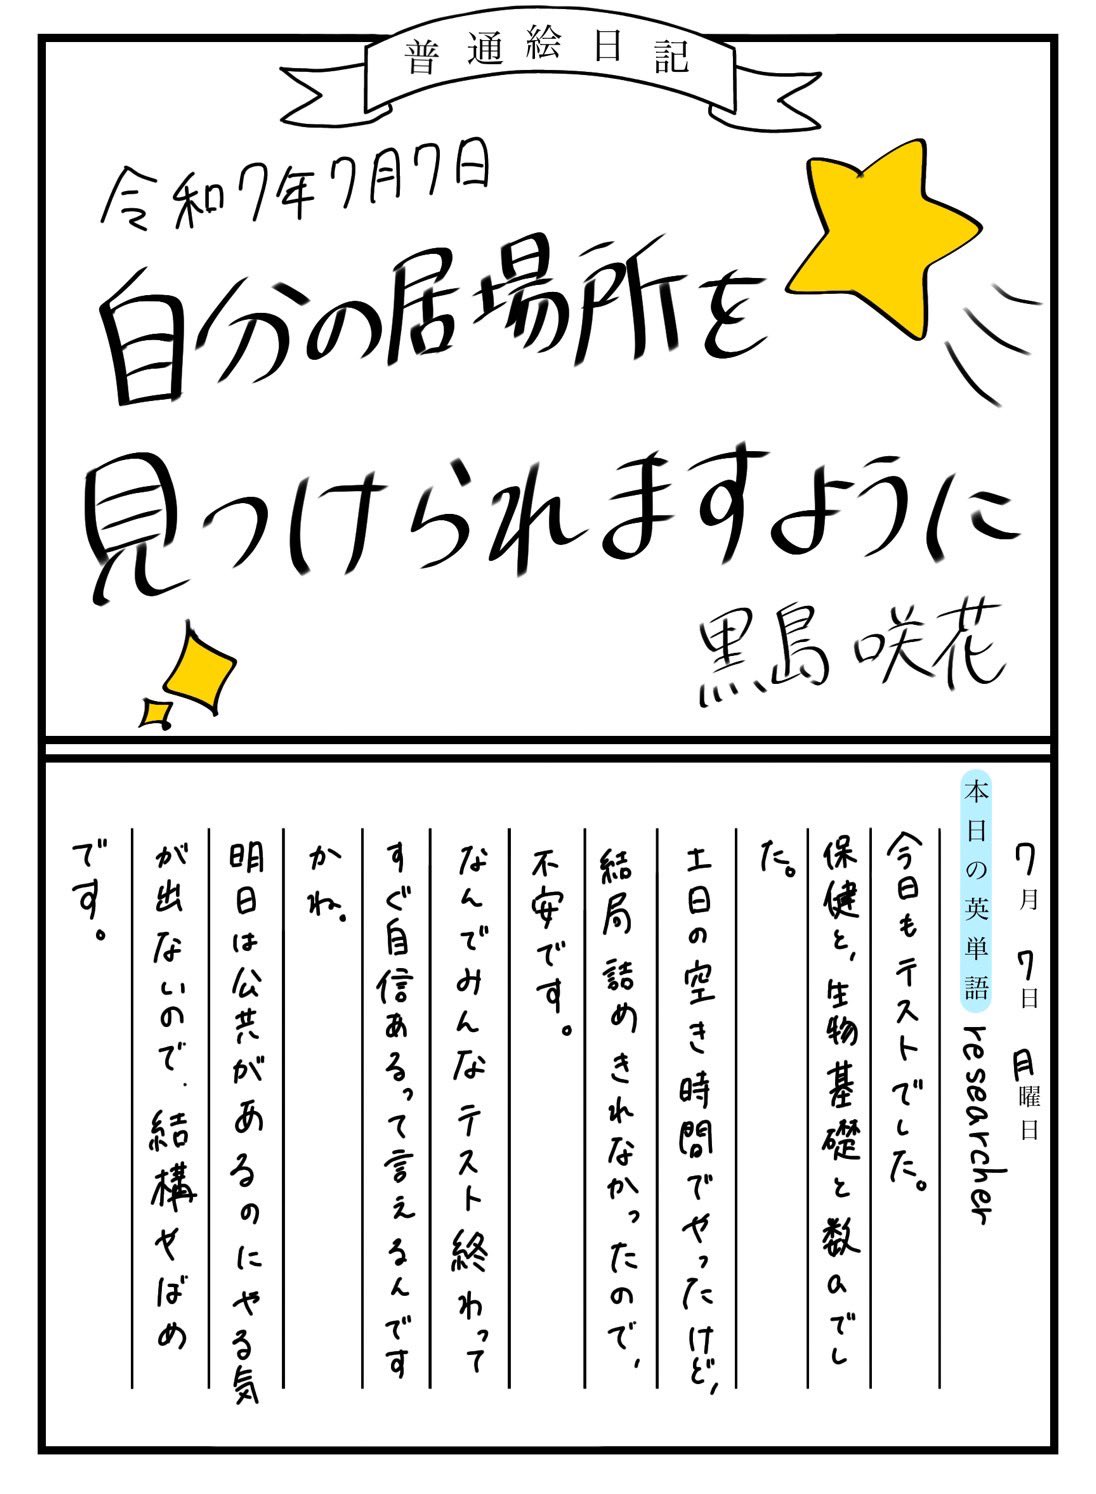 普通絵日記
令和7年7月7日
自分の居場所を
見つけられますように
黒島 咲花
7月 7日 月曜日
本日の英単語 researcher
今日もテストでした。
保健と、生物基礎と数aでし
た。
土日の空き時間でやったけど、
結局詰めきれなかったので、
不安です。
なんでみんなテスト終わって
すぐ自信あるって言えるんです
かね。
明日は公共があるのにやる気
が出ないので、結構やばめ
です。